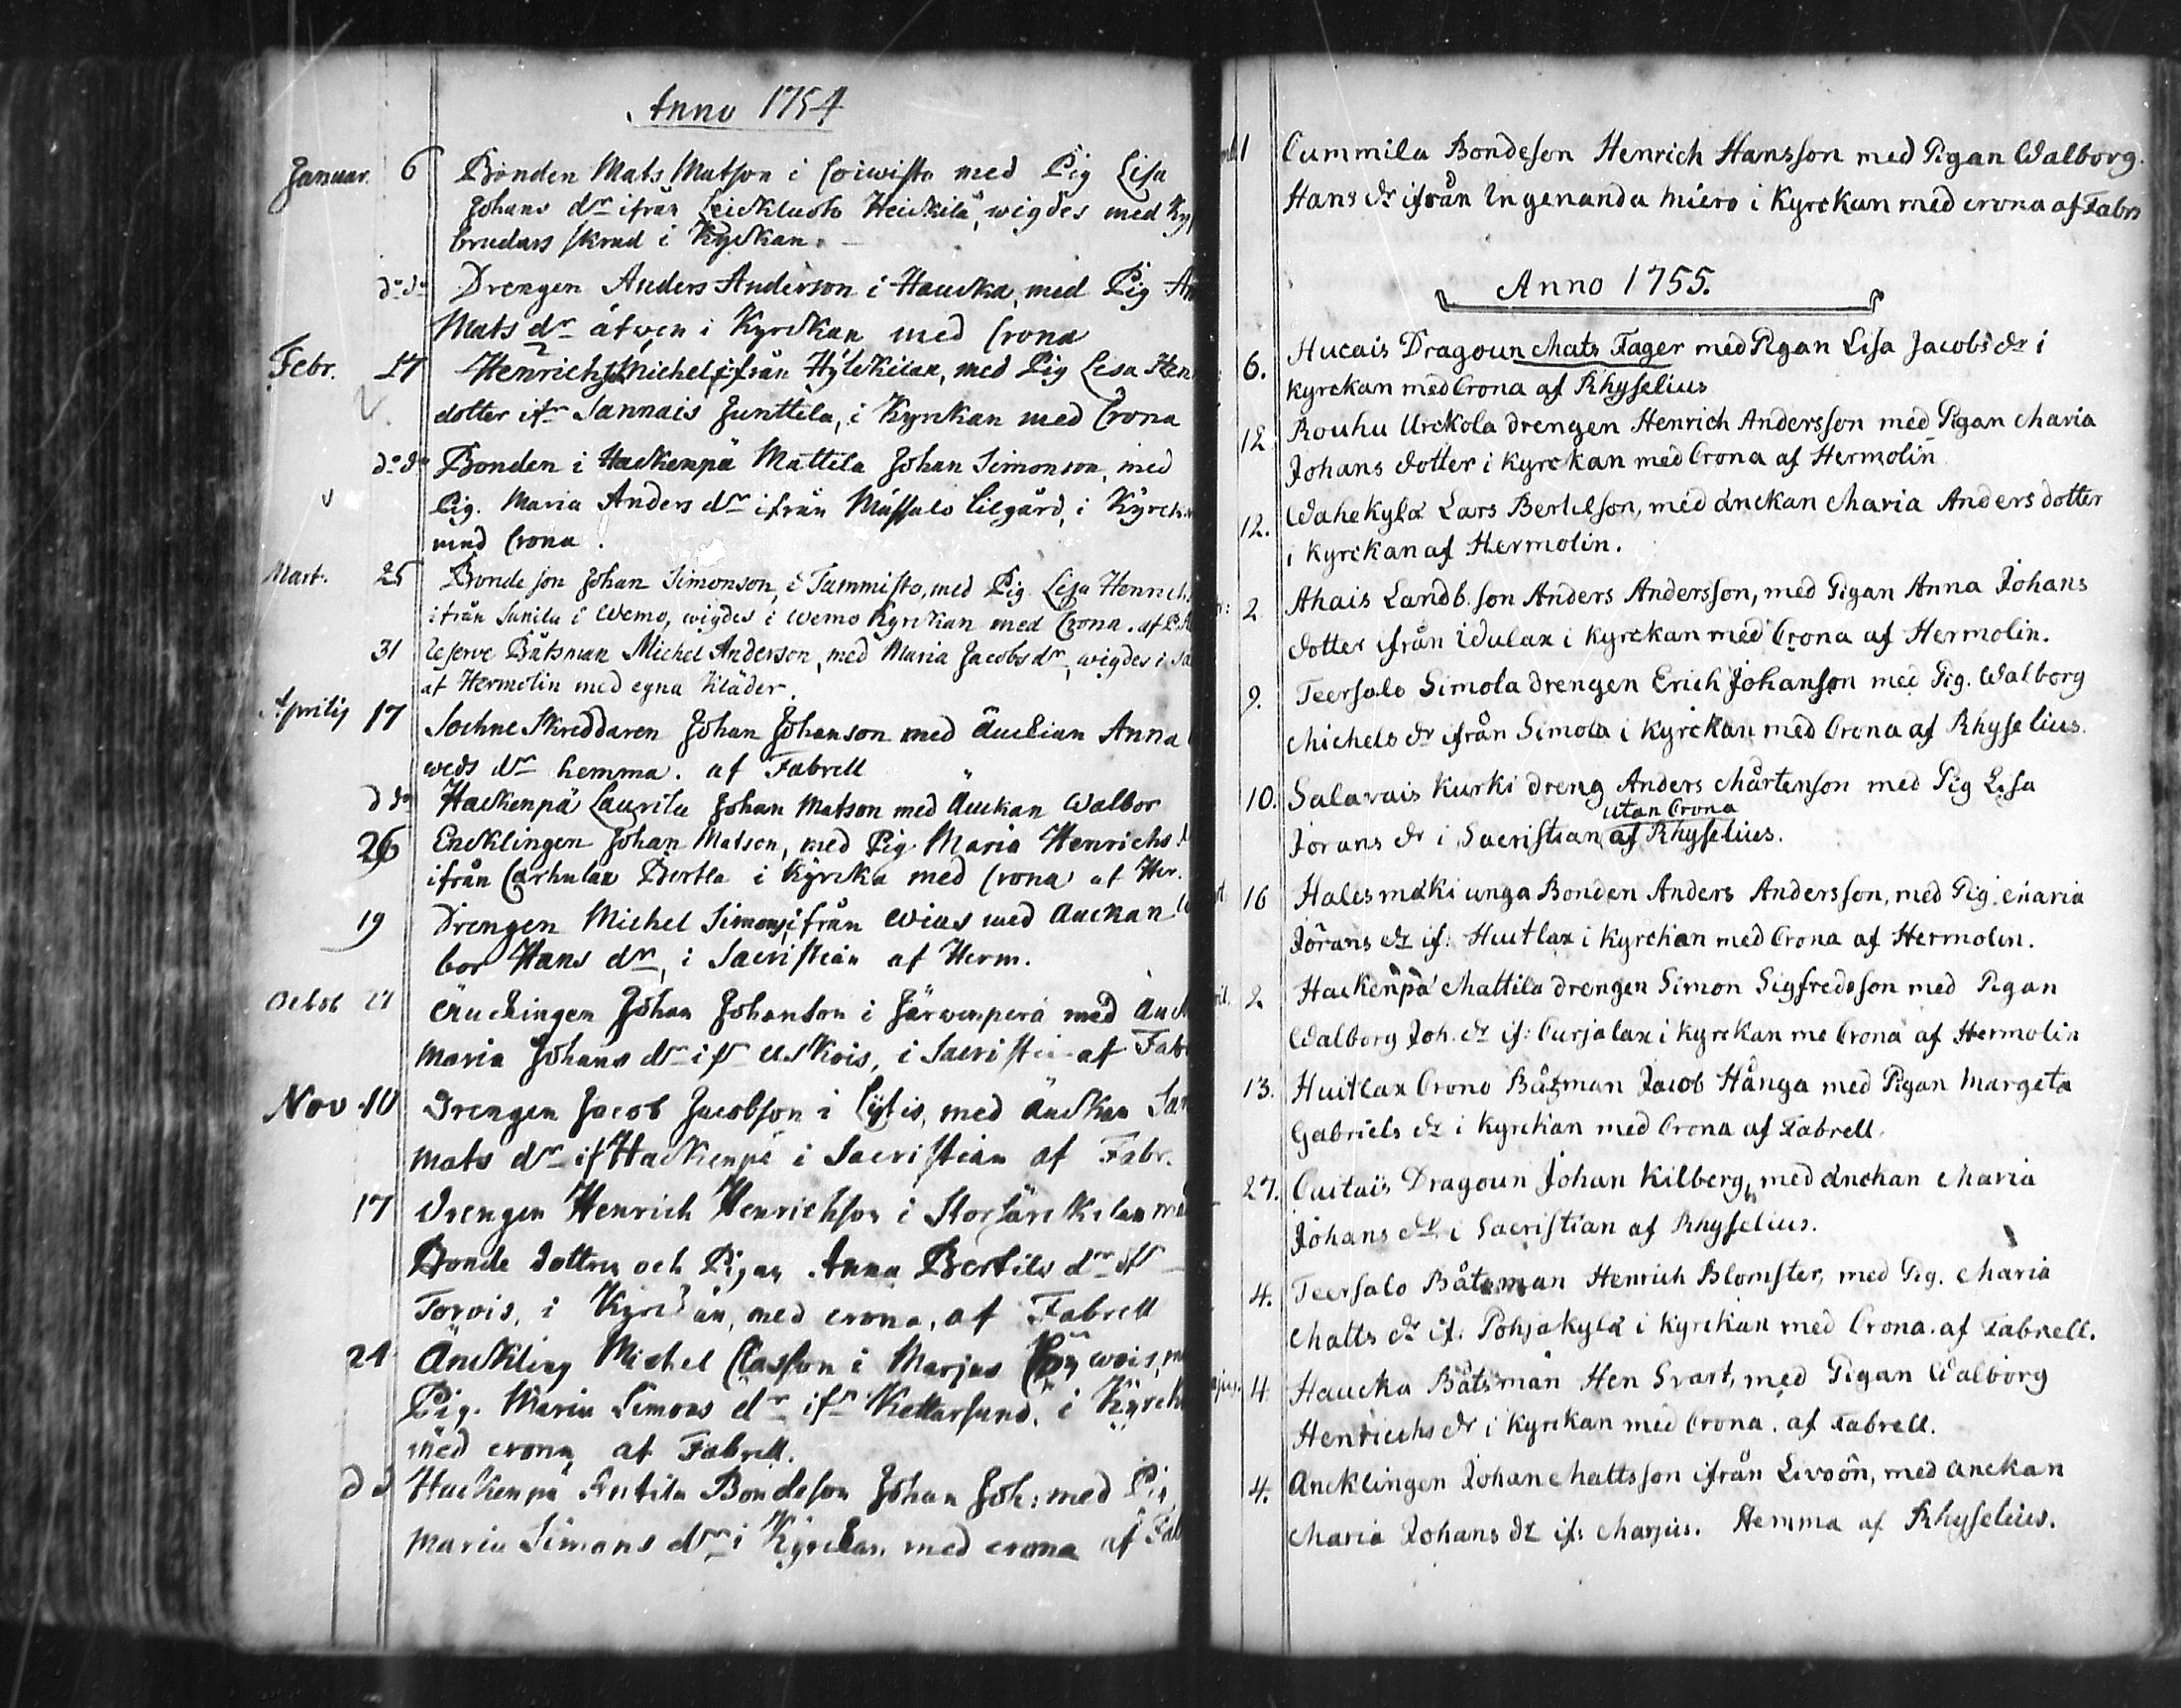 Anno 1754
Januar. 6 Bonden Mats Matson i Coiwisto med Pig Lisa
Johans dr ifrån Leickluoto Heickilä, wigdes med Ky
brudars skrud i Kyrckan.
do do Drengen Anders Anderson i Haucka, med Pig An
Mats dr äfwen i Kyrckan med Crona
Febr. 17 Henrich Michels ifrån Hylckilax, med Pig Lisa Hen
dotter ifr Sannais Junttila, i Kyrckan med Crona
do do Bonden i Hackenpä Mattila Johan Simonson, med
Pig. Maria Anders dr ifrån Mussalo Lilgård, i Kyrck
med Crona.
Mart. 25 Bondeson Johan Simonson, i Tammisto, med Pig. Lisa Henrich
ifrån Sunila i Wemo, wigdes i Wemo Kyrckan med Crona. af
31 Reserve Båtsman Michel Anderson, med Maria Jacobs dr, wigdes i Sa
af Hermolin med egna kläder.
Aprilis 17 Sockne Skreddaren Johan Johanson med änckian Anna
weds dr hemma. af Fabrell
d do Hackenpä Laurila Johan Matson med änckan Walbor
26 Encklingen Johan Matson, med Pig Maria Henrichs
ifrån Carhulax Bertla i Kyrcka med Crona af Her.
19 Drengen Michel Simons, ifrån Wias med Änckan W
bor Hans dr, i Sacristian af Herm.
Octob 27 Änckingen Johan Johanson i Järwenperä med änck
Maria Johans dr ifr Uskois, i Sacristi af Fab
Nov 10 Drengen Jacob Jacobson i Cylis, med Änckan
Mats dr if Hackenpä i Sacristian af Fabr.
17 Drengen Henrich Henrichson i Storsärckilax me
Bonde dottren och Pigan Anna Bertils dr if
Torvis, i Kyrckan, med crona, af Fabrell
24 Änckling Michel Classon i Marjus
Pig. Maria Simons dr ifr Kettarsund, i Kyrck
med crona af Fabrell.
d d Hackenpä Antila Bondeson Johan Joh: med Pig
Maria Simons dr i Kyrckan med crona af Fab
1 Cummila Bondeson Henrich Hansson med Pigan Walborg
Hans dr ifrån Ingenanda Miero i Kyrckan med crona af Fabr
Anno 1755.
6. Hucais Dragoun Mats Fager med Pigan Lisa Jacobs dr i
kyrckan med Crona af Rhyselius
12 Rouhu Urckola drengen Henrich Andersson med Pigan Maria
Johans dotter i kyrckan med Crona af Hermolin
12. Wahekylä Lars Bertelson, med änckan Maria Anders dotter
i kyrckan af Hermolin.
2 Ahais Landb. son Anders Andersson, med Pigan Anna Johans
dotter ifrån Widulax i kyrckan med Crona af Hermolin.
9. Teersalo Simola drengen Erich Johanson med Pig. Walborg
Michels dr ifrån Simola i kyrckan med Crona af Rhyselius.
10. Salavais Kurki dreng Anders Mårtenson med Pig Lisa
utan Crona
Jörans dr i Sacristian af Rhyselius.
16 Halesmäki unga Bonden Anders Andersson, med Pig. Maria
Jörans dr if: Huitlax i kyrckan med Crona af Hermolin.
2 Hackenpä Mattila drengen Simon Sigfredsson med Pigan
Walborg Joh. dr if: Curjalax i kyrckan me Crona af Hermolin
13. Huitlax Crono Båtzman Jacob Hånga med Pigan Margeta
Gabriels dr i kyrckan med Crona af Fabrell.
27. Cuitais Dragoun Johan Kilberg, med änckan Maria
Johans dr, i Sacristian af Rhyselius.
4. Teersalo Båtsman Henrich Blomster, med Pig. Maria
Matts dr if: Pohjakylä i kyrckan med Crona. af Fabrell.
4 Haucka Båtsman Hen Svart, med Pigan Walborg
Henrichs dr i kyrckan med Crona. af Fabrell.
4. Ancklingen Johan Mattsson ifrån Livoön, med anckan
Maria Johans dr if: Marjus. Hemma af Rhyselius.